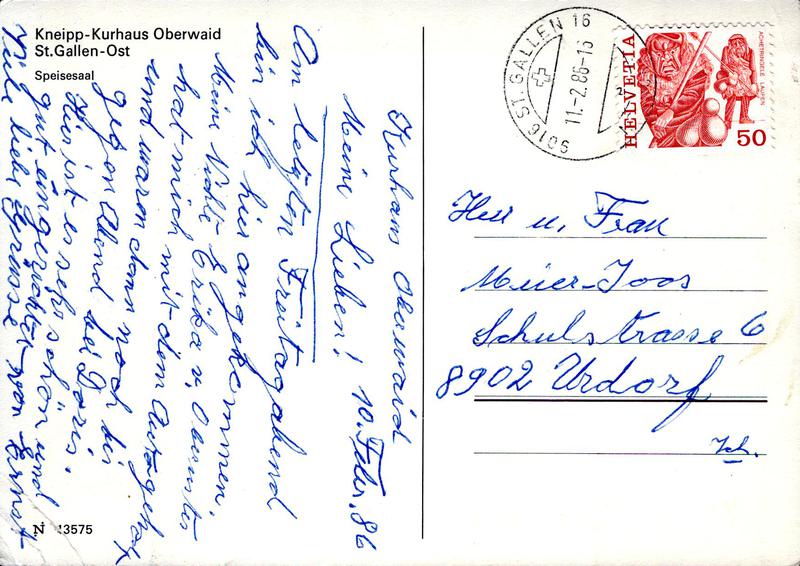 Kneipp-Kurhaus Oberwaid
St.Gallen-Ost
Speisesaal
Kurhaus Oberwaid
10. Febr. 86
Mein Lieben!
Am letzten Freitagabend
bin ich hier angekommen.
Meine Nichte Erika v. Oberuster
hat mich mit dem Auto geholt
und waren dann noch bis
gegen Abend bei Doris.
Hier ist es sehr schön und
gut eingerichtet
Viele liebe Grüsse von Ernst
N 13575
9016 ST. GALLEN 16
11.-2.86-15
9016 05
HELVETIA
ACHETRINGELE LAUPEN
50
Herr u. Frau
Meier-Joos
Schulstrasse 6
8902 Urdorf
Zch.